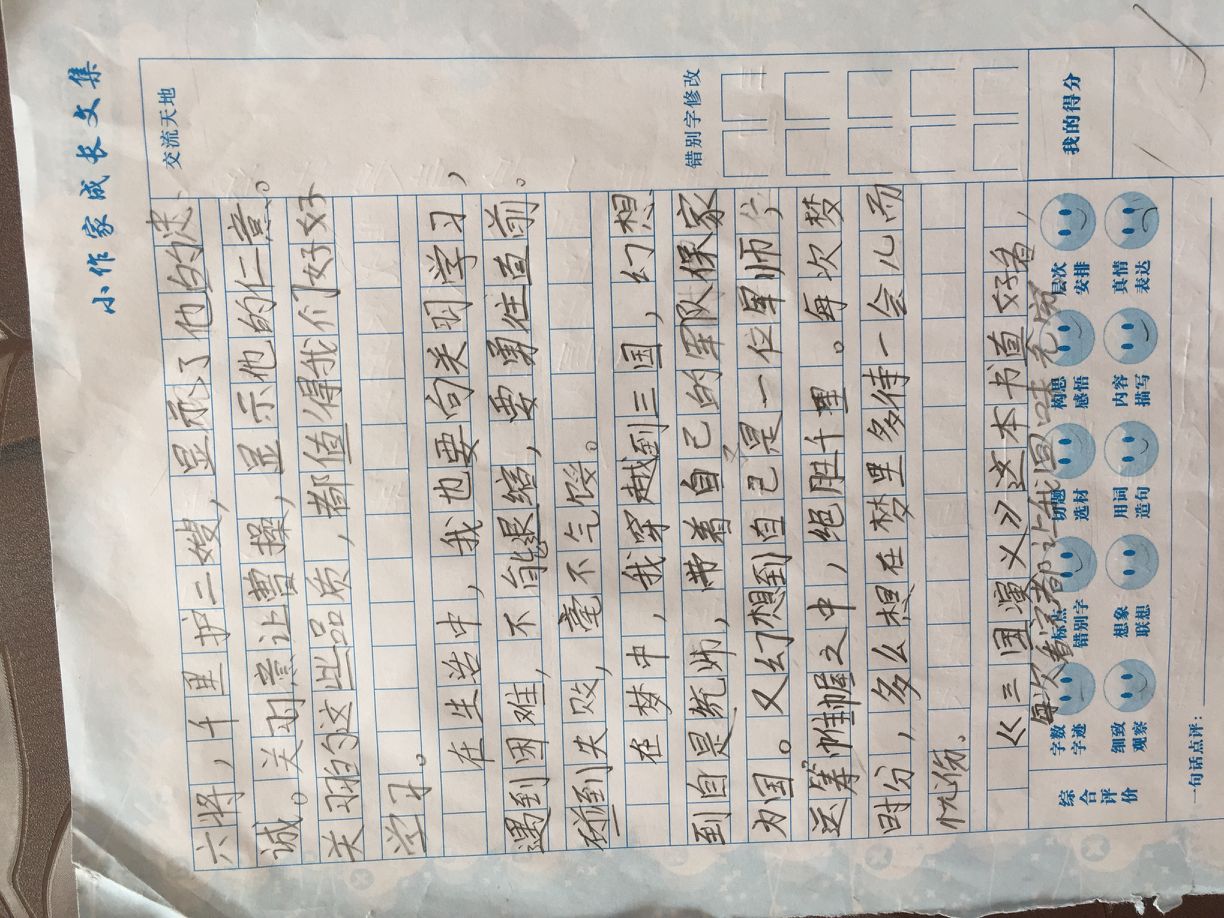 小作家成长文集
交流天地
错别字修改
我的得分
六将，千里护二嫂，显示了他的忠
诚。关羽意让曹操，显示他的仁意。
关羽的这些品质，都值得我们好好
学习。
在生活中，我也要向关羽学习，
遇到困难，不能退缩，要勇往直前。
碰到失败，毫不气馁。
在梦中，我穿越到三国，幻想
到自是统帅，带着自己的军队保家
为国。又幻想到自己是一位军师，
运筹帷幄之中，绝胜千里。每次梦
时分，多么想在梦里多待一会儿而
忧伤。
《三国演义》这本书真好看，
每次看完都让我回味无穷
综合评价
字数 字迹
标点 错别字
切题 选材
构思 感悟
层次 安排
细致 观察
想象 联想
用词 造句
内容 描写
真情 表达
一句话点评：